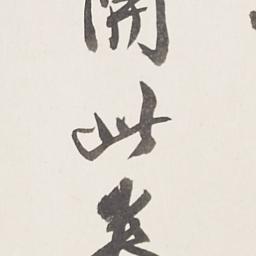 開此卷